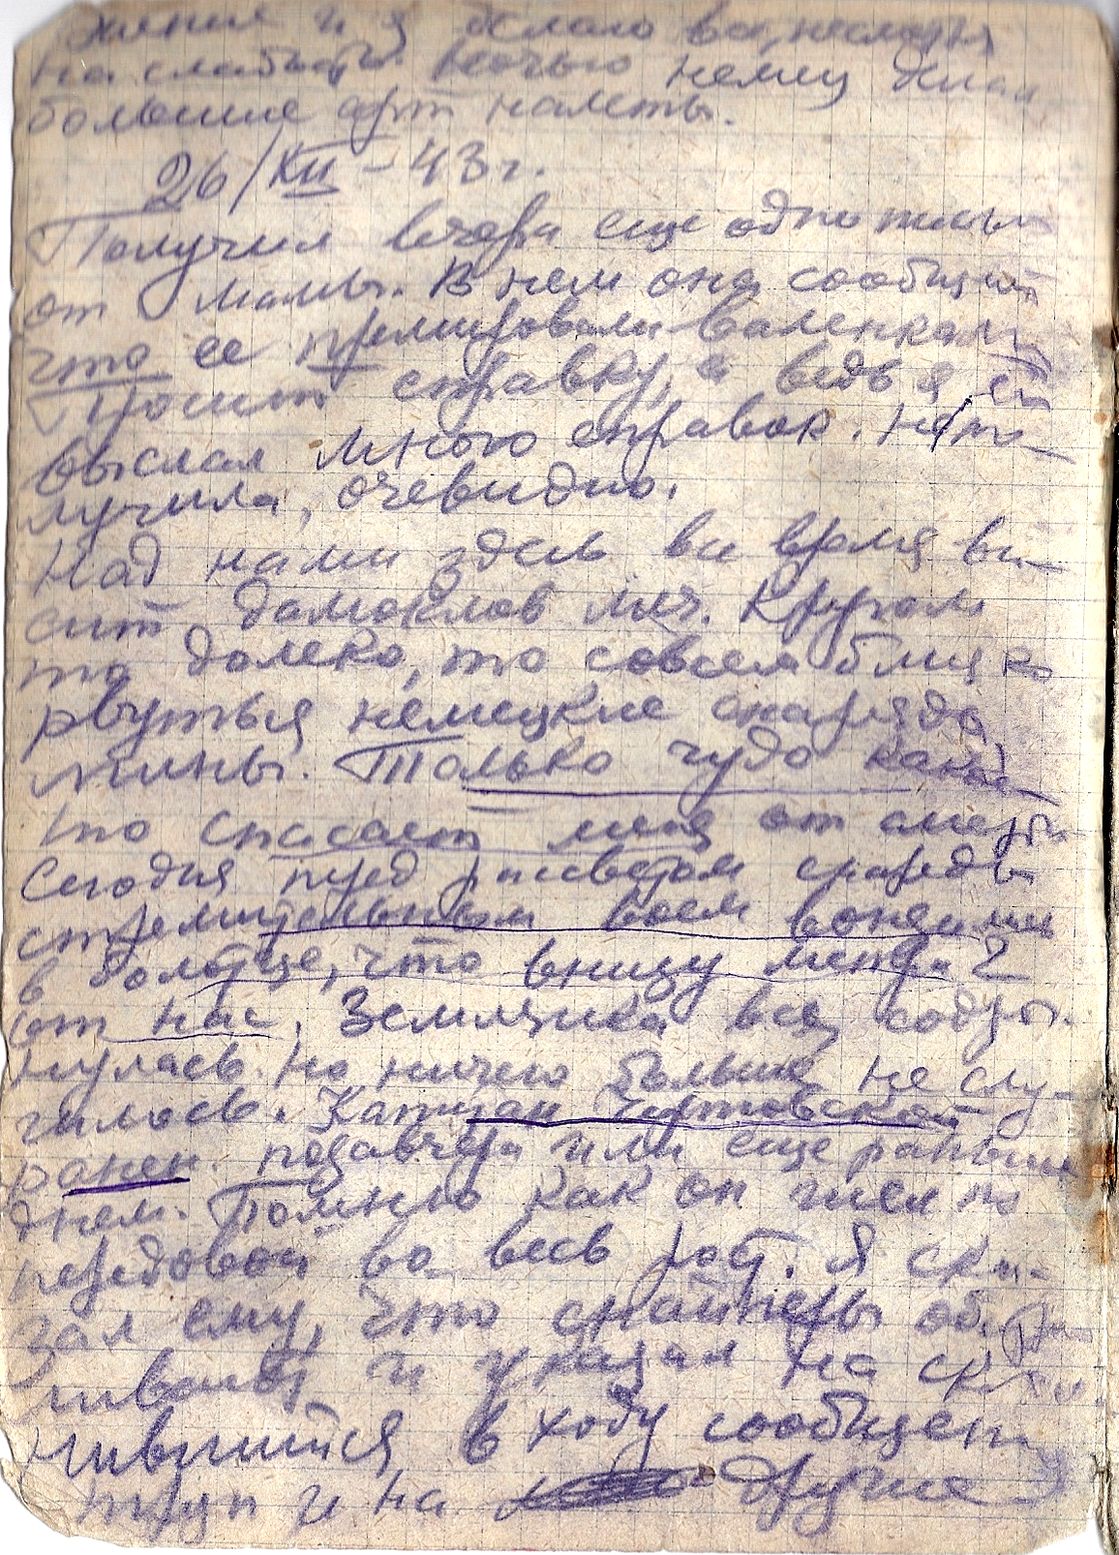 жения и я делаю все, несмотря
на слабость. Ночью немец делал
большие арт налеты.
26/XII – 43 г.
Получил вчера еще одно письмо
от мамы. В нем она сообщает
что ее премировали валенками
Просит справку, а ведь я ей
выслал много справок. Не по-
лучила, очевидно.
Над нами здесь все время ви-
сит дамоклов меч. Кругом
то далеко, то совсем близко
рвуться немецкие снаряды
мины. Только чудо какое-
то спасает меня от смерти
Сегодня перед рассветом снаряды
стремительным воем вонзились
в болотце, что внизу
от нас, Землянка вся содрог-
нулась. Но ничего больше не слу-
чилось. Капитан
ранен позавчера или еще раньше
днем. Помню как он шел по
передовой во весь рост. Я ска-
зал ему, что снайперы обстре-
ливают и указал на
нившийся в ходу сообщен.
труп и на другие